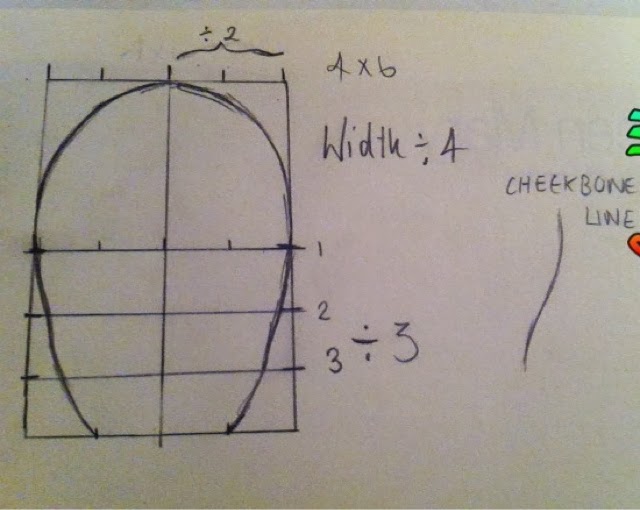 ÷ 2
4 x 6
Width ÷ 4
CHEEKBONE
LINE
1
2
3
÷ 3